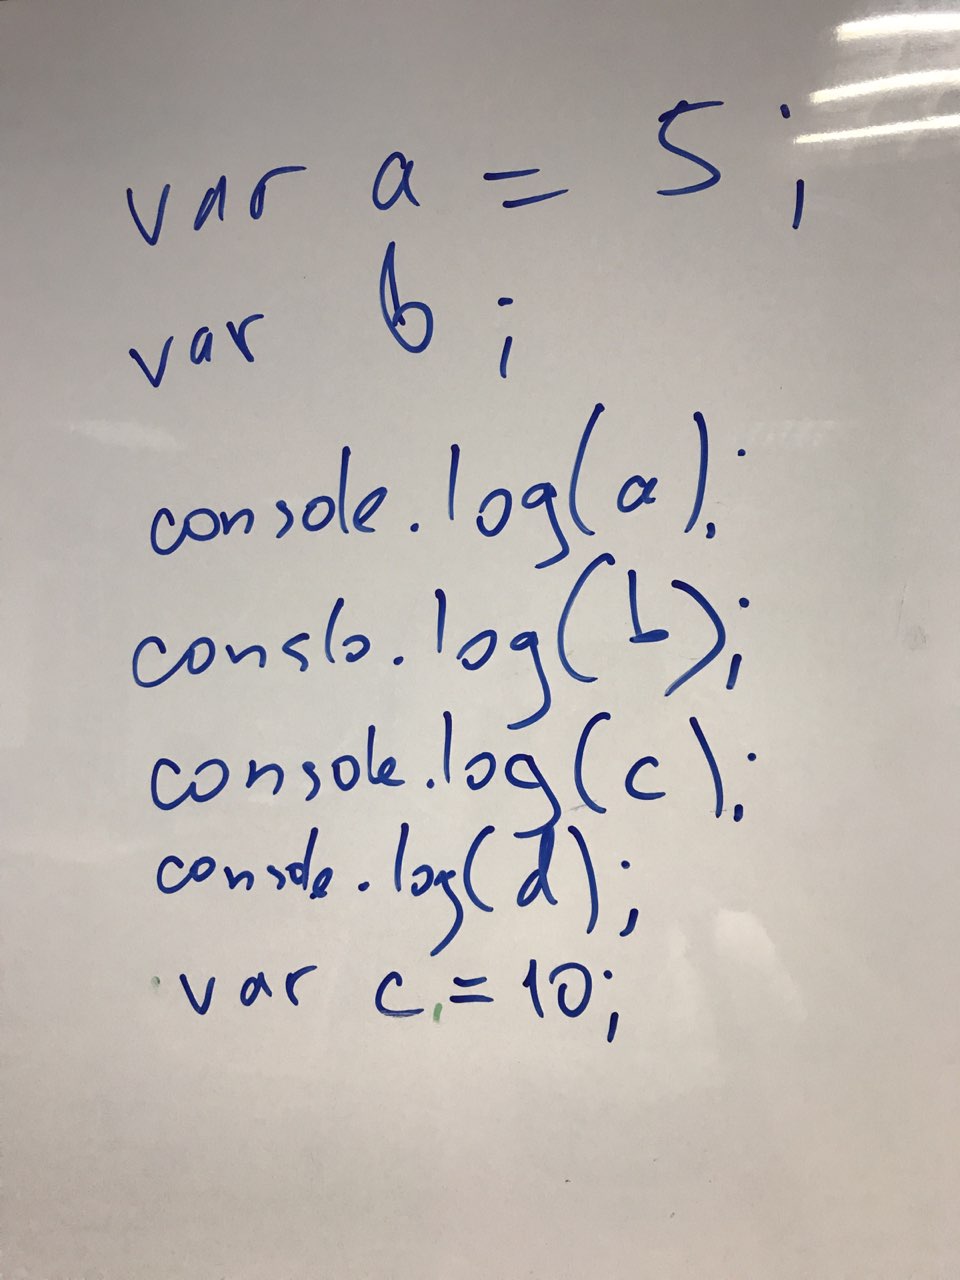 var a = 5;
var b;
console.log(a);
conslo.log(b);
console.log(c);
console.log(d);
var c = 10;